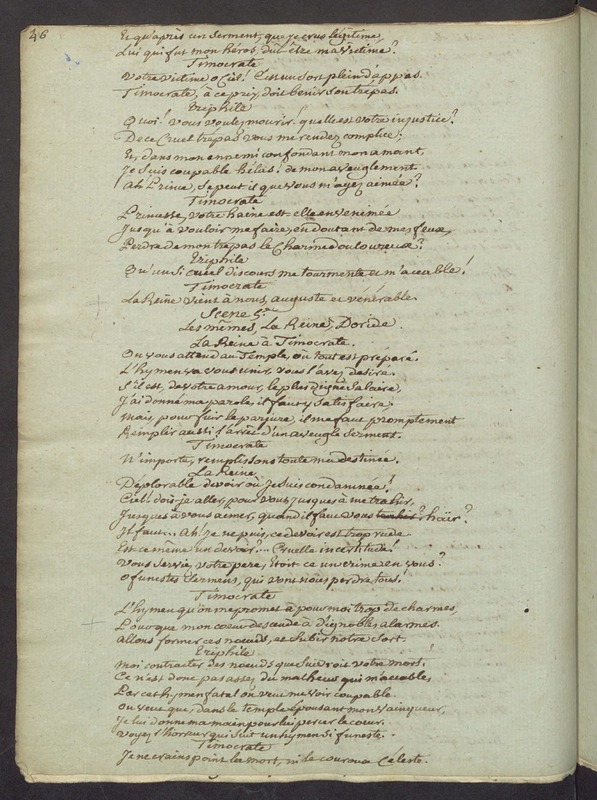 46
Et qu'après un serment, que je crus légitime,
Lui qui fut mon héros, dût être ma victime?
Timocrate
Votre victime ô Ciel! C'est un sort plein d'appas.
Timocrate, à ce prix, doit benir son trépas.
Eriphile
Quoi! vous voulez mourir. quelle est votre injustice?
De ce Cruel trepas vous me rendez complice;
Et, dans mon ennemi confondant mon amant,
Je suis coupable hélas! de mon aveuglement.
Ah Prince, se peut-il que vous m'ayez aimée?
Timocrate
Princesse, votre haine est-elle envenimée
Jusqu'à vouloir me faire, en doutant de mes feux,
Perdre de mon trepas le Charme douloureux?
Eriphile
Qu'un si cruel discours me tourmente et m'accable!
Timocrate
La Reine vient à nous, auguste et vénérable.
Scene 5e
Les mêmes, La Reine, Doride.
La Reine à Timocrate.
On vous attend au Temple, où tout est préparé.
L'hymen va vous unir, vous l'avez desiré.
S'il est, de votre amour, le plus digne salaire,
J'ai donné ma parole, il faut y satisfaire;
Mais, pour fuir le parjure, il me faut promptement
Remplir aussi l'arrêt d'un aveugle serment.
Timocrate
N'importe, remplissons toute ma destinée.
La Reine
Déplorable devoir où je suis condamnée!
Ciel! dois-je aller, pour vous, jusques à me trahir,
Jusques à vous aimer, quand il faut vous haïr?
Il faut... Ah! je ne puis, ce devoir est trop rude
Est-ce même un devoir?... Cruelle incertitude!
Vous servir, votre pere, étoit-ce un crime en vous?
O funestes sermens, qui vont nous perdre tous!
Timocrate
L'hymen qu'on me promet a pour moi trop de charmes,
Pour que mon coeur descende à d'ignobles alarmes.
Allons former ces noeuds, et subir notre sort.
Eriphile
Moi contracter des noeuds que suivroit votre mort!
Ce n'est donc pas assez du malheur qui m'accable,
Par cet hymen fatal on veut me voir coupable.
On veut que, dans le temple épousant mon vainqueur,
Je lui donne ma main pour lui percer le coeur.
Voyez l'horreur qui suit un hymen si funeste.
Timocrate
Je ne crains point la mort, ni le couroux Céleste.